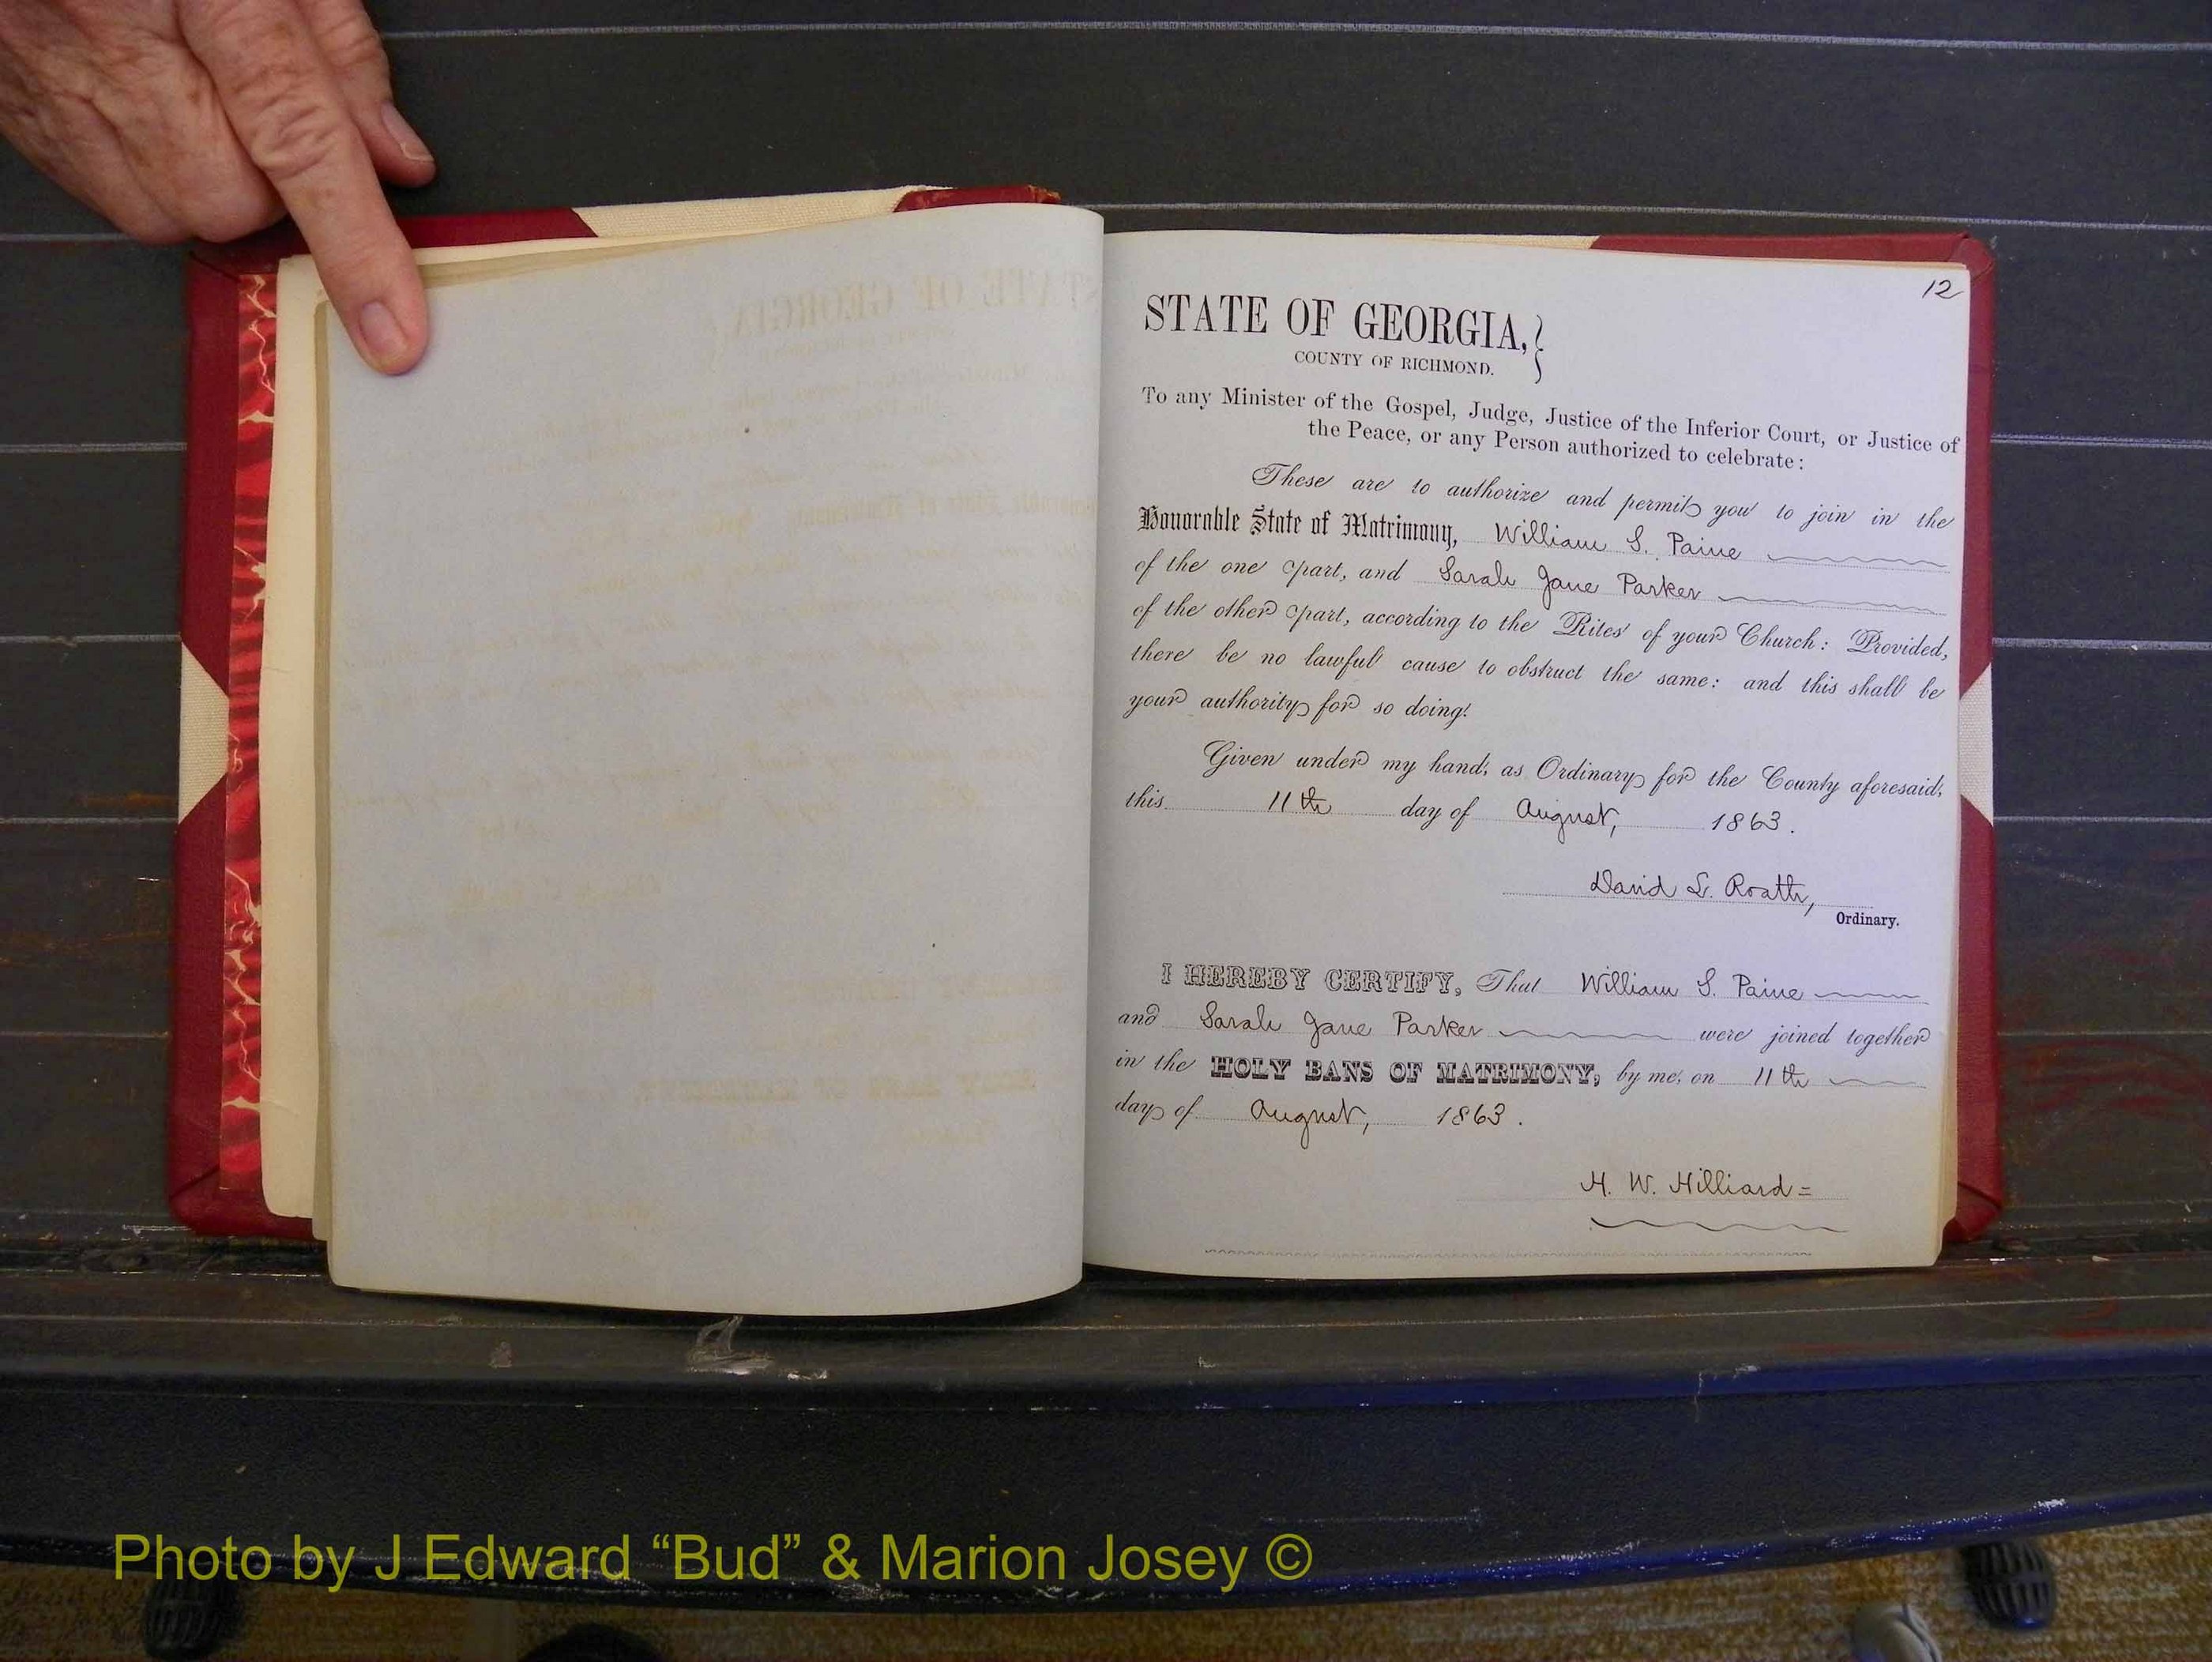 12
STATE OF GEORGIA,
COUNTY OF RICHMOND.
To any Minister of the Gospel, Judge, Justice of the Inferior Court, or Justice of
the Peace, or any Person authorized to celebrate:
These are to authorize and permit you to join in the
Honorable State of Matrimony, William S. Paine
of the one part, and Sarah Jane Parker
of the other part, according to the Rites of your Church: Provided,
there be no lawful cause to obstruct the same: and this shall be
your authority for so doing.
Given under my hand, as Ordinary for the County aforesaid,
this 11th day of August, 1863.
David L. Roath,
Ordinary.
I HEREBY CERTIFY, That William S. Paine
and Sarah Jane Parker were joined together
in the HOLY BANS OF MATRIMONY, by me, on 11th
day of August, 1863.
H. W. Hilliard=
Photo by J Edward “Bud” & Marion Josey ©